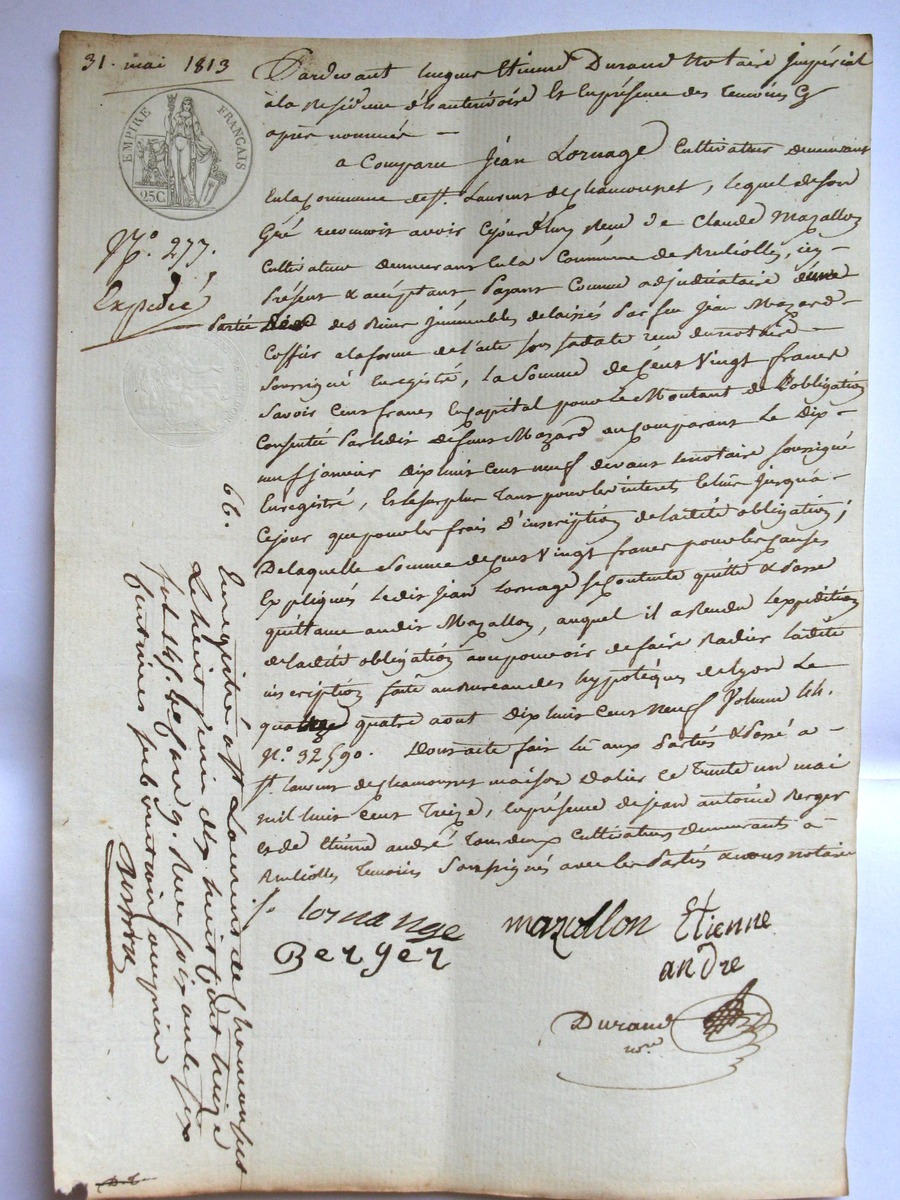 31. mai 1813
EMPIRE FRANÇAIS
25C
N.º 277.
Expédié
Pardevant hugues Etienne Durand Notaire Impérial
à la Résidence d'hauterivoire Et en présence des temoins Cy
après nommés —
a Comparu Jean Lornage Cultivateur demeurant
en la Commune de St. Laurent de Chamousset, lequel de son
Gré reconnoit avoir Cejourd'huy Reçu de Claude Mazallon
Cultivateur demeurant en la Commune de Brulliolles, icy
Présent & acceptant Payant Comme adjudicataire d'une
Partie des Biens immeubles délaissés Par feu Jean Mazard
Coffier a la forme de l'acte sous sa date reçu du notaire —
soussigné Enregistré, la Somme de Cent Vingt francs
Savoir Cent francs En Capital pour le Montant de L'obligation
Consentie Par ledit défunt Mazard au Comparant Le Dix
neuf janvier dix huit cent neuf devant le notaire soussigné
Enregistré, Et le surplus tant pour les interets Echus jusqu'a
Cejour que pour les frais D'inscription de la dite obligation;
De laquelle Somme de Cent Vingt francs pour les Causes
Expliqués Ledit Jean Lornage se Contente quitte & Passe
quittance audit Mazallon, auquel il a Rendu l'expédition
de la dite obligation avec pouvoir de faire Radier la dite
inscription faite au Bureau des hypotéques de Lyon Le
quatre aout Dix huit Cent Neuf Volume 44.
N.º 32590. Dont acte fait lu aux Parties & Passé a
St. Laurent de Chamousset maison Dalier ce trente un mai
mil huit Cent treize, En présence de jean antoine Berger
et de Etienne andré tous deux Cultivateurs demeurants à
Brulliolles temoins Soussignés avec les Parties & nous notaire
J. lornange mazallon Etienne
Berger andre
Durand
nre
66. Enregistré a St Laurent de Chamousset
Le huit juin dix huit cent treize
fol. 145. Reçu soixante six
centimes subvention comprise